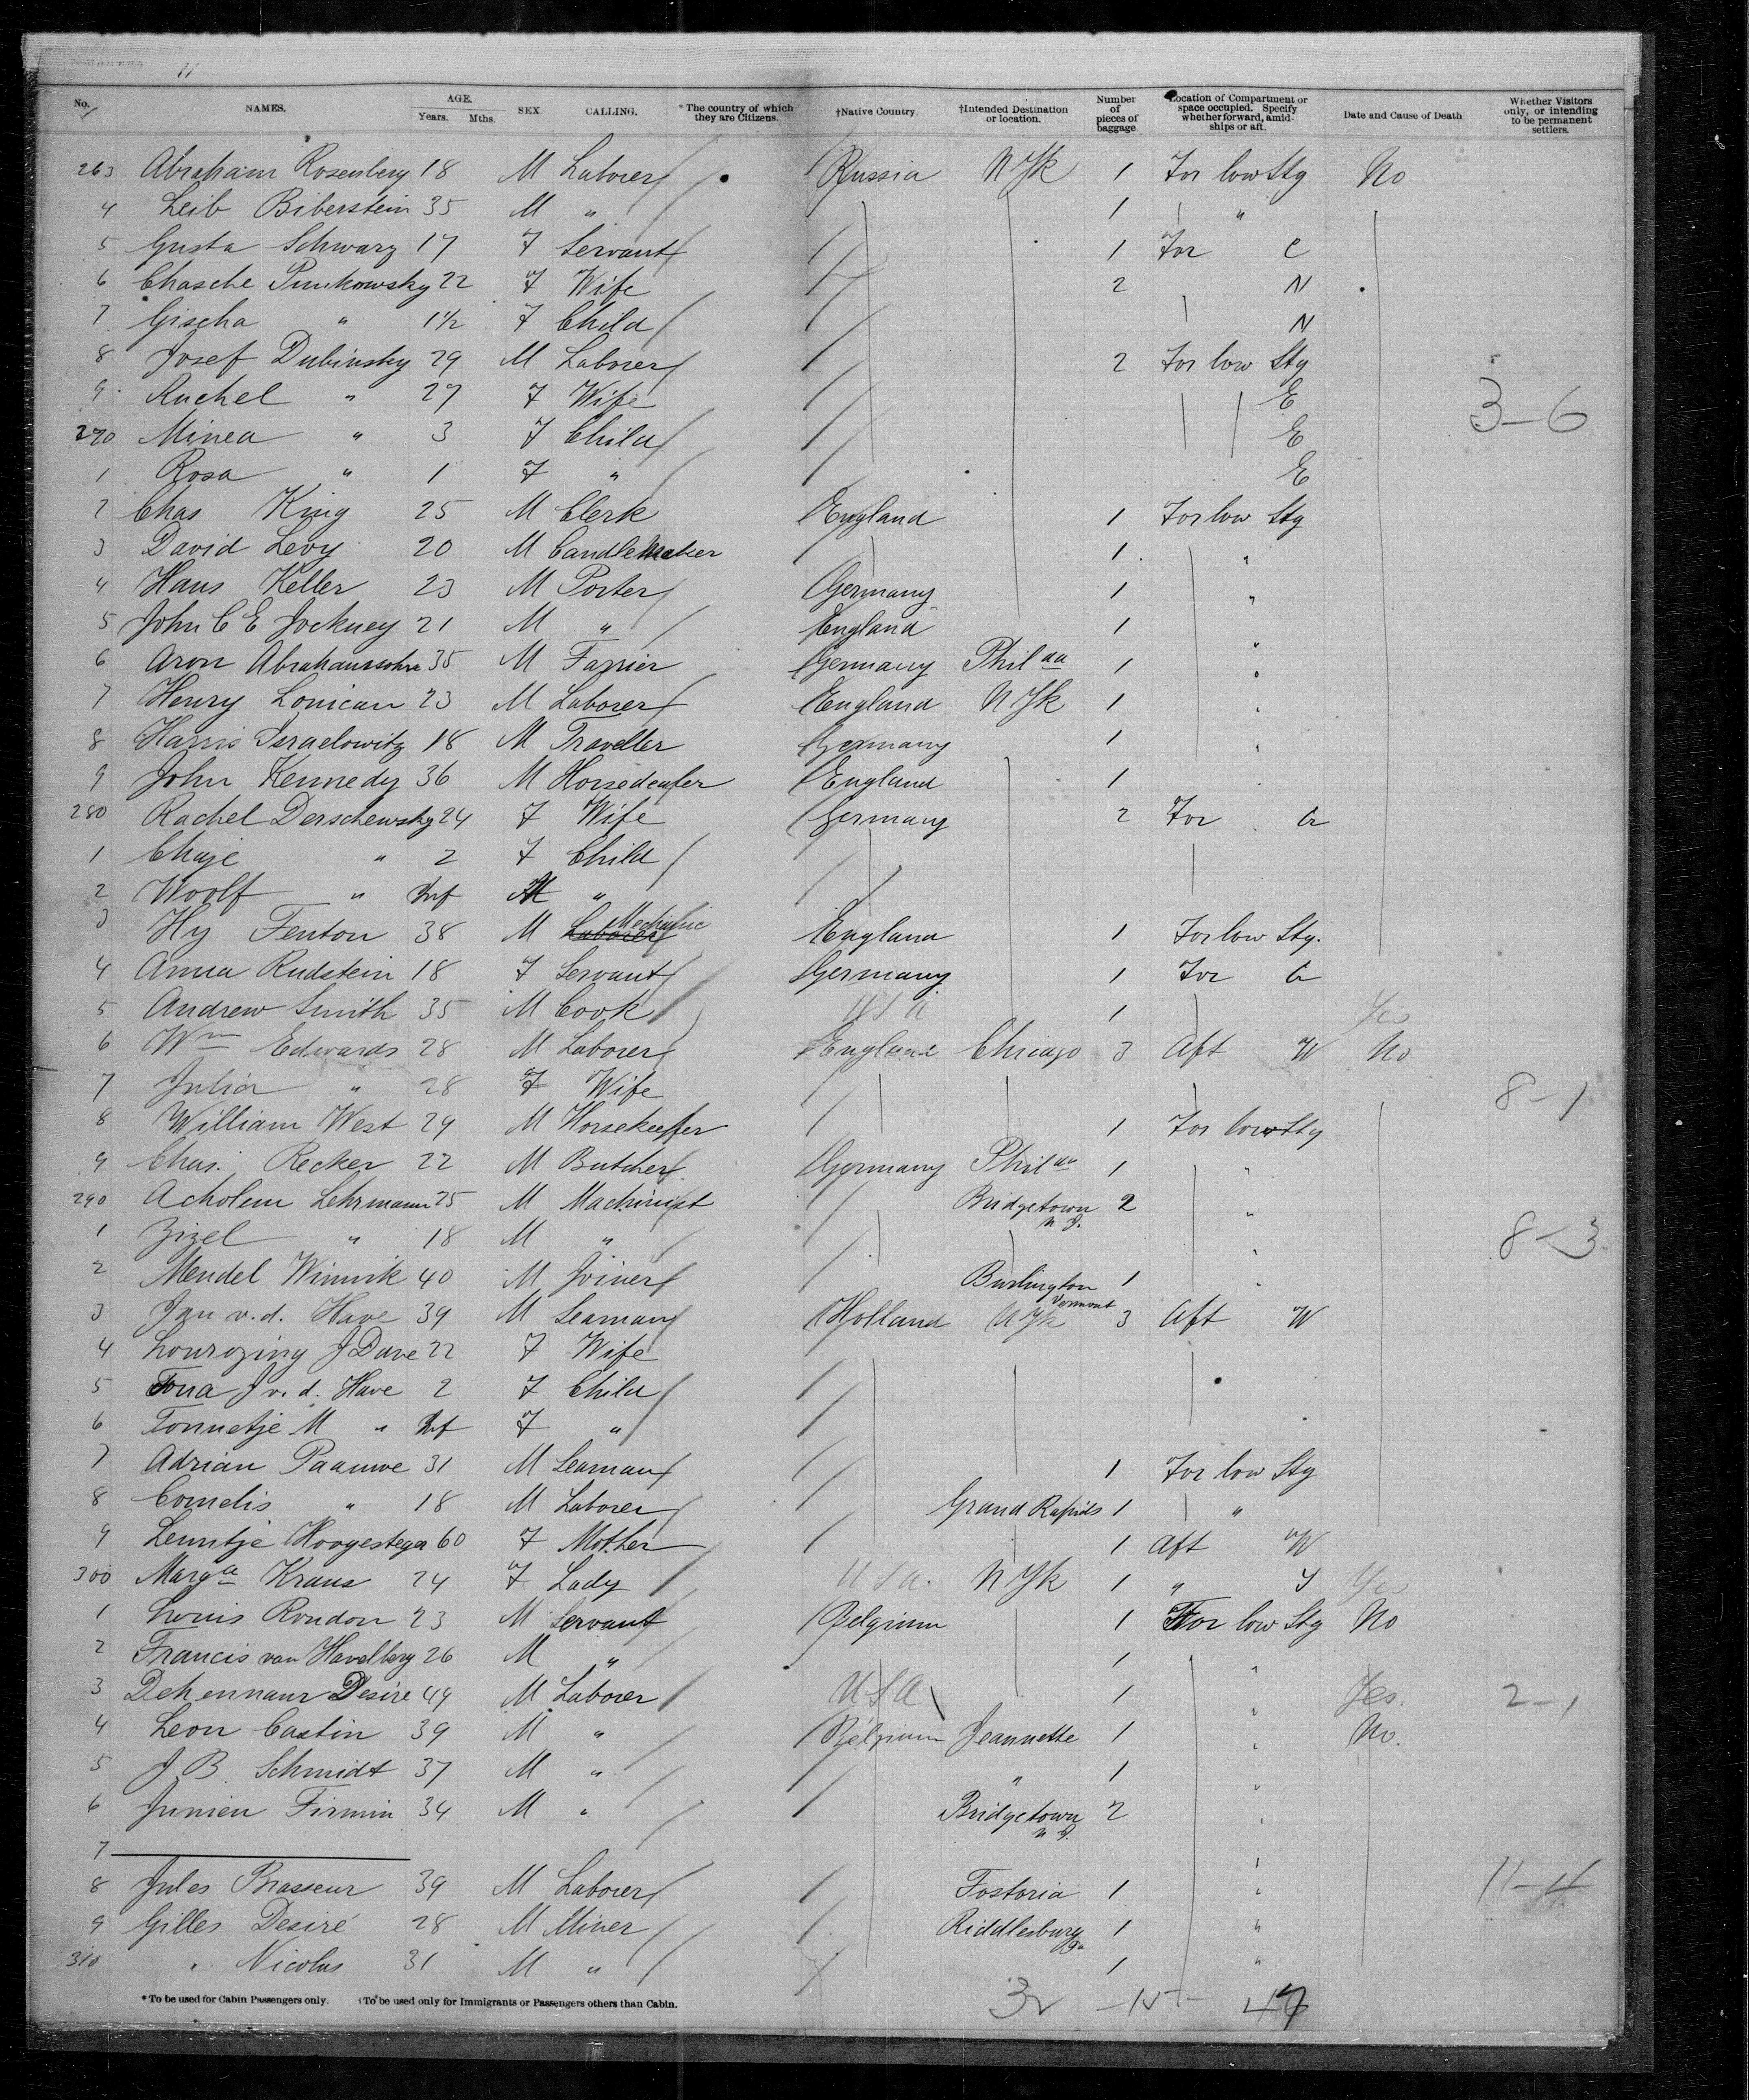 11
No. NAMES. AGE. Years. Mths. SEX. CALLING. *The country of which they are Citizens. †Native Country. †Intended Destination or location. Number of pieces of baggage Location of Compartment or space occupied. Specify whether forward, amidships or aft. Date and Cause of Death Whether Visitors only, or intending to be permanent settlers.
263 Abraham Rosenberg 18 M Laborer Russia N Yk 1 For low Stg No
4 Leib Biberstein 35 M " 1 "
5 Gusta Schwarz 17 F Servant 1 For C
6 Chasche Punkowsky 22 F Wife 2 N
7 Gischa " 1½ F Child N
8 Josef Dubinsky 29 M Laborer 2 For low Stg
9 Ruchel " 27 F Wife E 3-6
270 Minea " 3 F Child E
1 Rosa " 1 F " E
2 Chas King 25 M Clerk England 1 For low Stg
3 David Levy 20 M Candlemaker 1 "
4 Hans Keller 23 M Porter Germany 1 "
5 John C E Jockney 21 M " England 1 "
6 Aron Abrahamssohn 35 M Farrier Germany Philda 1 "
7 Henry Lonican 23 M Laborer England N Yk 1 "
8 Harris Israelowitz 18 M Traveller Germany 1 "
9 John Kennedy 36 M Horsedealer England 1 "
280 Rachel Derschewsky 24 F Wife Germany 2 For G
1 Chaje " 2 F Child
2 Woolf " Inf M "
3 Hy Fenton 38 M Laborer Mechanic England 1 For low Stg.
4 Anna Rudstein 18 F Servant Germany 1 For G
5 Andrew Smith 35 M Cook U S A 1 Yes
6 Wm Edwards 28 M Laborer England Chicago 3 Aft W No
7 Julia " 28 F Wife 8-1
8 William West 29 M Horsekeeper 1 For low Stg
9 Chas. Recker 22 M Butcher Germany Philda 1 "
290 Acholem Lehrmann 25 M Machinist Bridgetown N J. 2 "
1 Zizel " 18 M " " 8-3
2 Mendel Winnik 40 M Joiner Burlington Vermont 1 "
3 Jan v.d. Have 39 M Seaman Holland N Yk 3 Aft W
4 Lourozing J Dave 22 F Wife
5 Tona J v. d. Have 2 F Child
6 Tonnetje M " Inf F "
7 Adrian Paauwe 31 M Seaman 1 For low Stg
8 Cornelis " 18 M Laborer Grand Rapids 1 "
9 Leuntje Hoogesteger 60 F Mother 1 Aft W
300 Marga Kraus 24 F Lady U S A. N Yk 1 " Y Yes
1 Louis Rondon 23 M Servant Belgium 1 For low Stg No
2 Francis van Havelberg 26 M " 1 "
3 Dehennaur Desire 49 M Laborer U S A 1 " Yes. 2-1
4 Leon Castin 39 M " Belgium Jeannette 1 " No.
5 J. B. Schmidt 37 M " " 1 "
6 Junien Firmin 34 M " Bridgetown N J. 2 "
7
8 Jules Brasseur 39 M Laborer Fostoria 1 " 11-4
9 Gilles Desiré 28 M Miner Riddlesburg Pa 1 "
310 " Nicolas 31 M " 1 "
*To be used for Cabin Passengers only. †To be used only for Immigrants or Passengers others than Cabin.
47